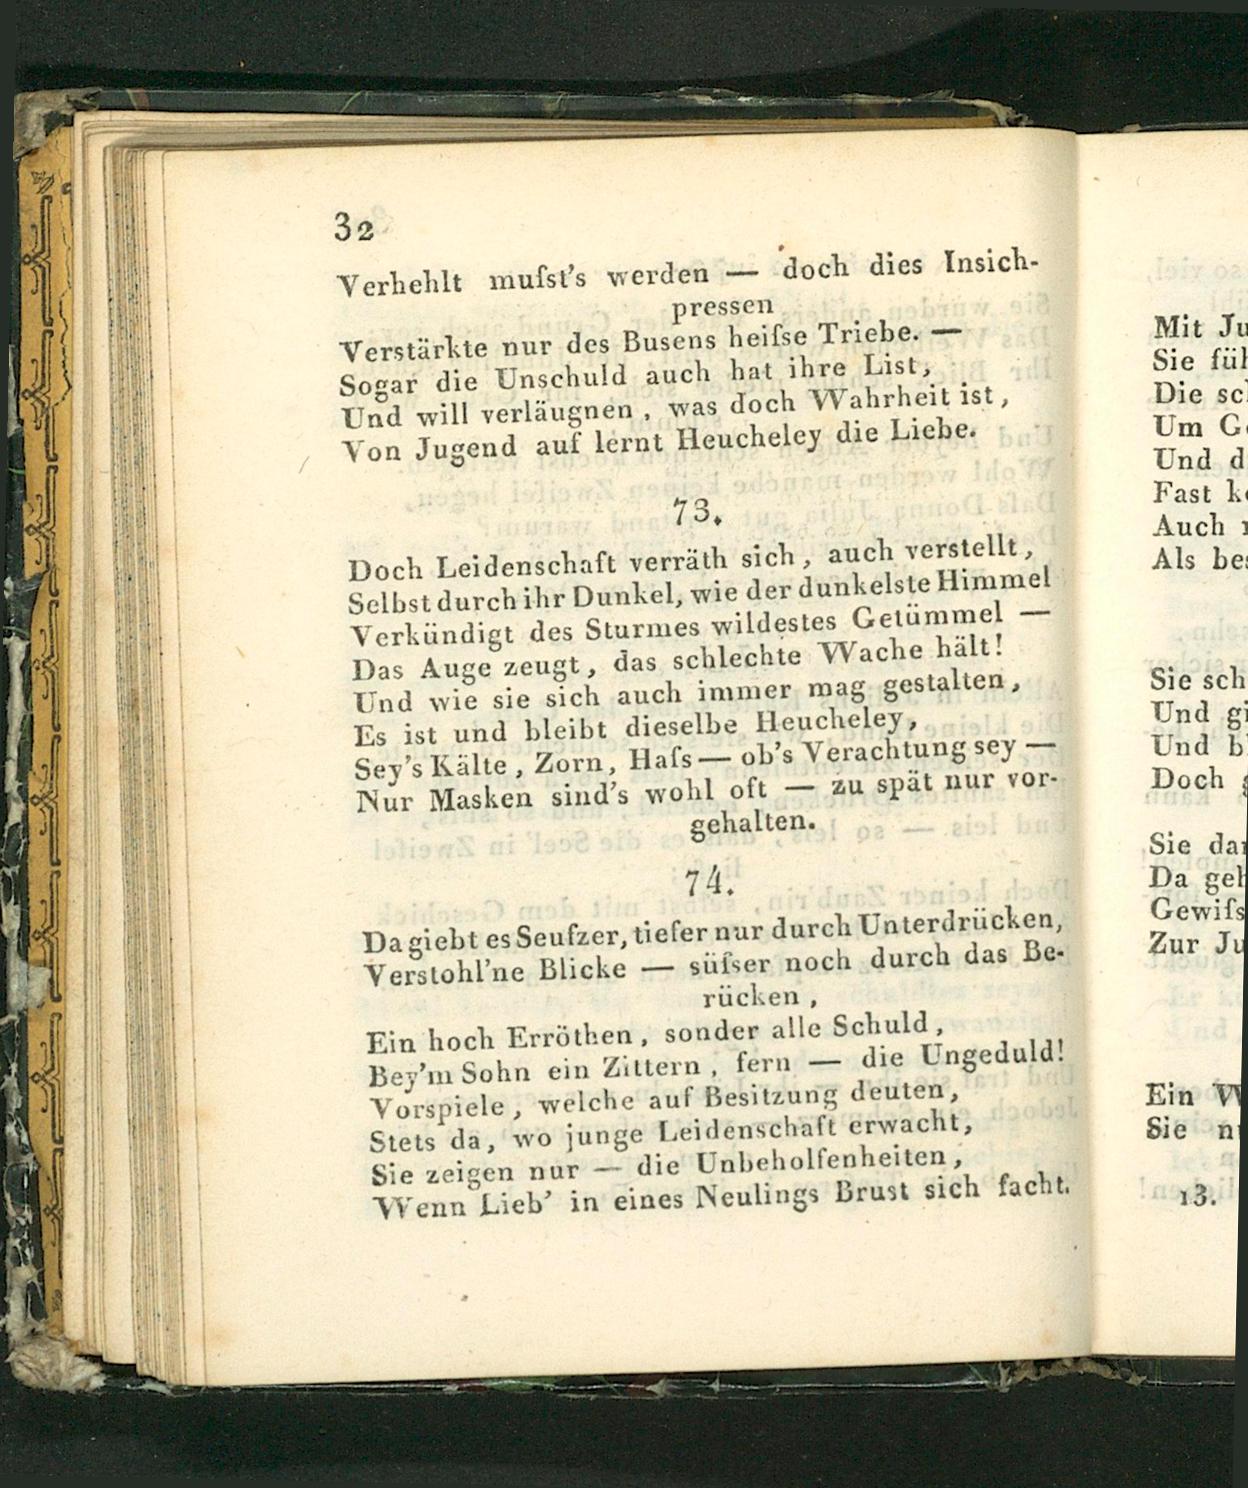 32
Verhehlt muſst's werden — doch dies Insich-
pressen
Verstärkte nur des Busens heiſse Triebe. —
Sogar die Unschuld auch hat ihre List,
Und will verläugnen, was doch Wahrheit ist,
Von Jugend auf lernt Heucheley die Liebe.
73.
Doch Leidenschaft verräth sich, auch verstellt,
Selbst durch ihr Dunkel, wie der dunkelste Himmel
Verkündigt des Sturmes wildestes Getümmel —
Das Auge zeugt, das schlechte Wache hält!
Und wie sie sich auch immer mag gestalten,
Es ist und bleibt dieselbe Heucheley,
Sey's Kälte, Zorn, Haſs — ob's Verachtung sey —
Nur Masken sind's wohl oft — zu spät nur vor-
gehalten.
74.
Da giebt es Seufzer, tiefer nur durch Unterdrücken,
Verstohl'ne Blicke — süſser noch durch das Be-
rücken,
Ein hoch Erröthen, sonder alle Schuld,
Bey'm Sohn ein Zittern, fern — die Ungeduld!
Vorspiele, welche auf Besitzung deuten,
Stets da, wo junge Leidenschaft erwacht,
Sie zeigen nur — die Unbeholfenheiten,
Wenn Lieb' in eines Neulings Brust sich facht.
Mit
Sie
Die
Um
Und
Fast
Auch
Als
Sie
Und
Und
Doch
Sie
Da
Zur
Ein
Sie
13.